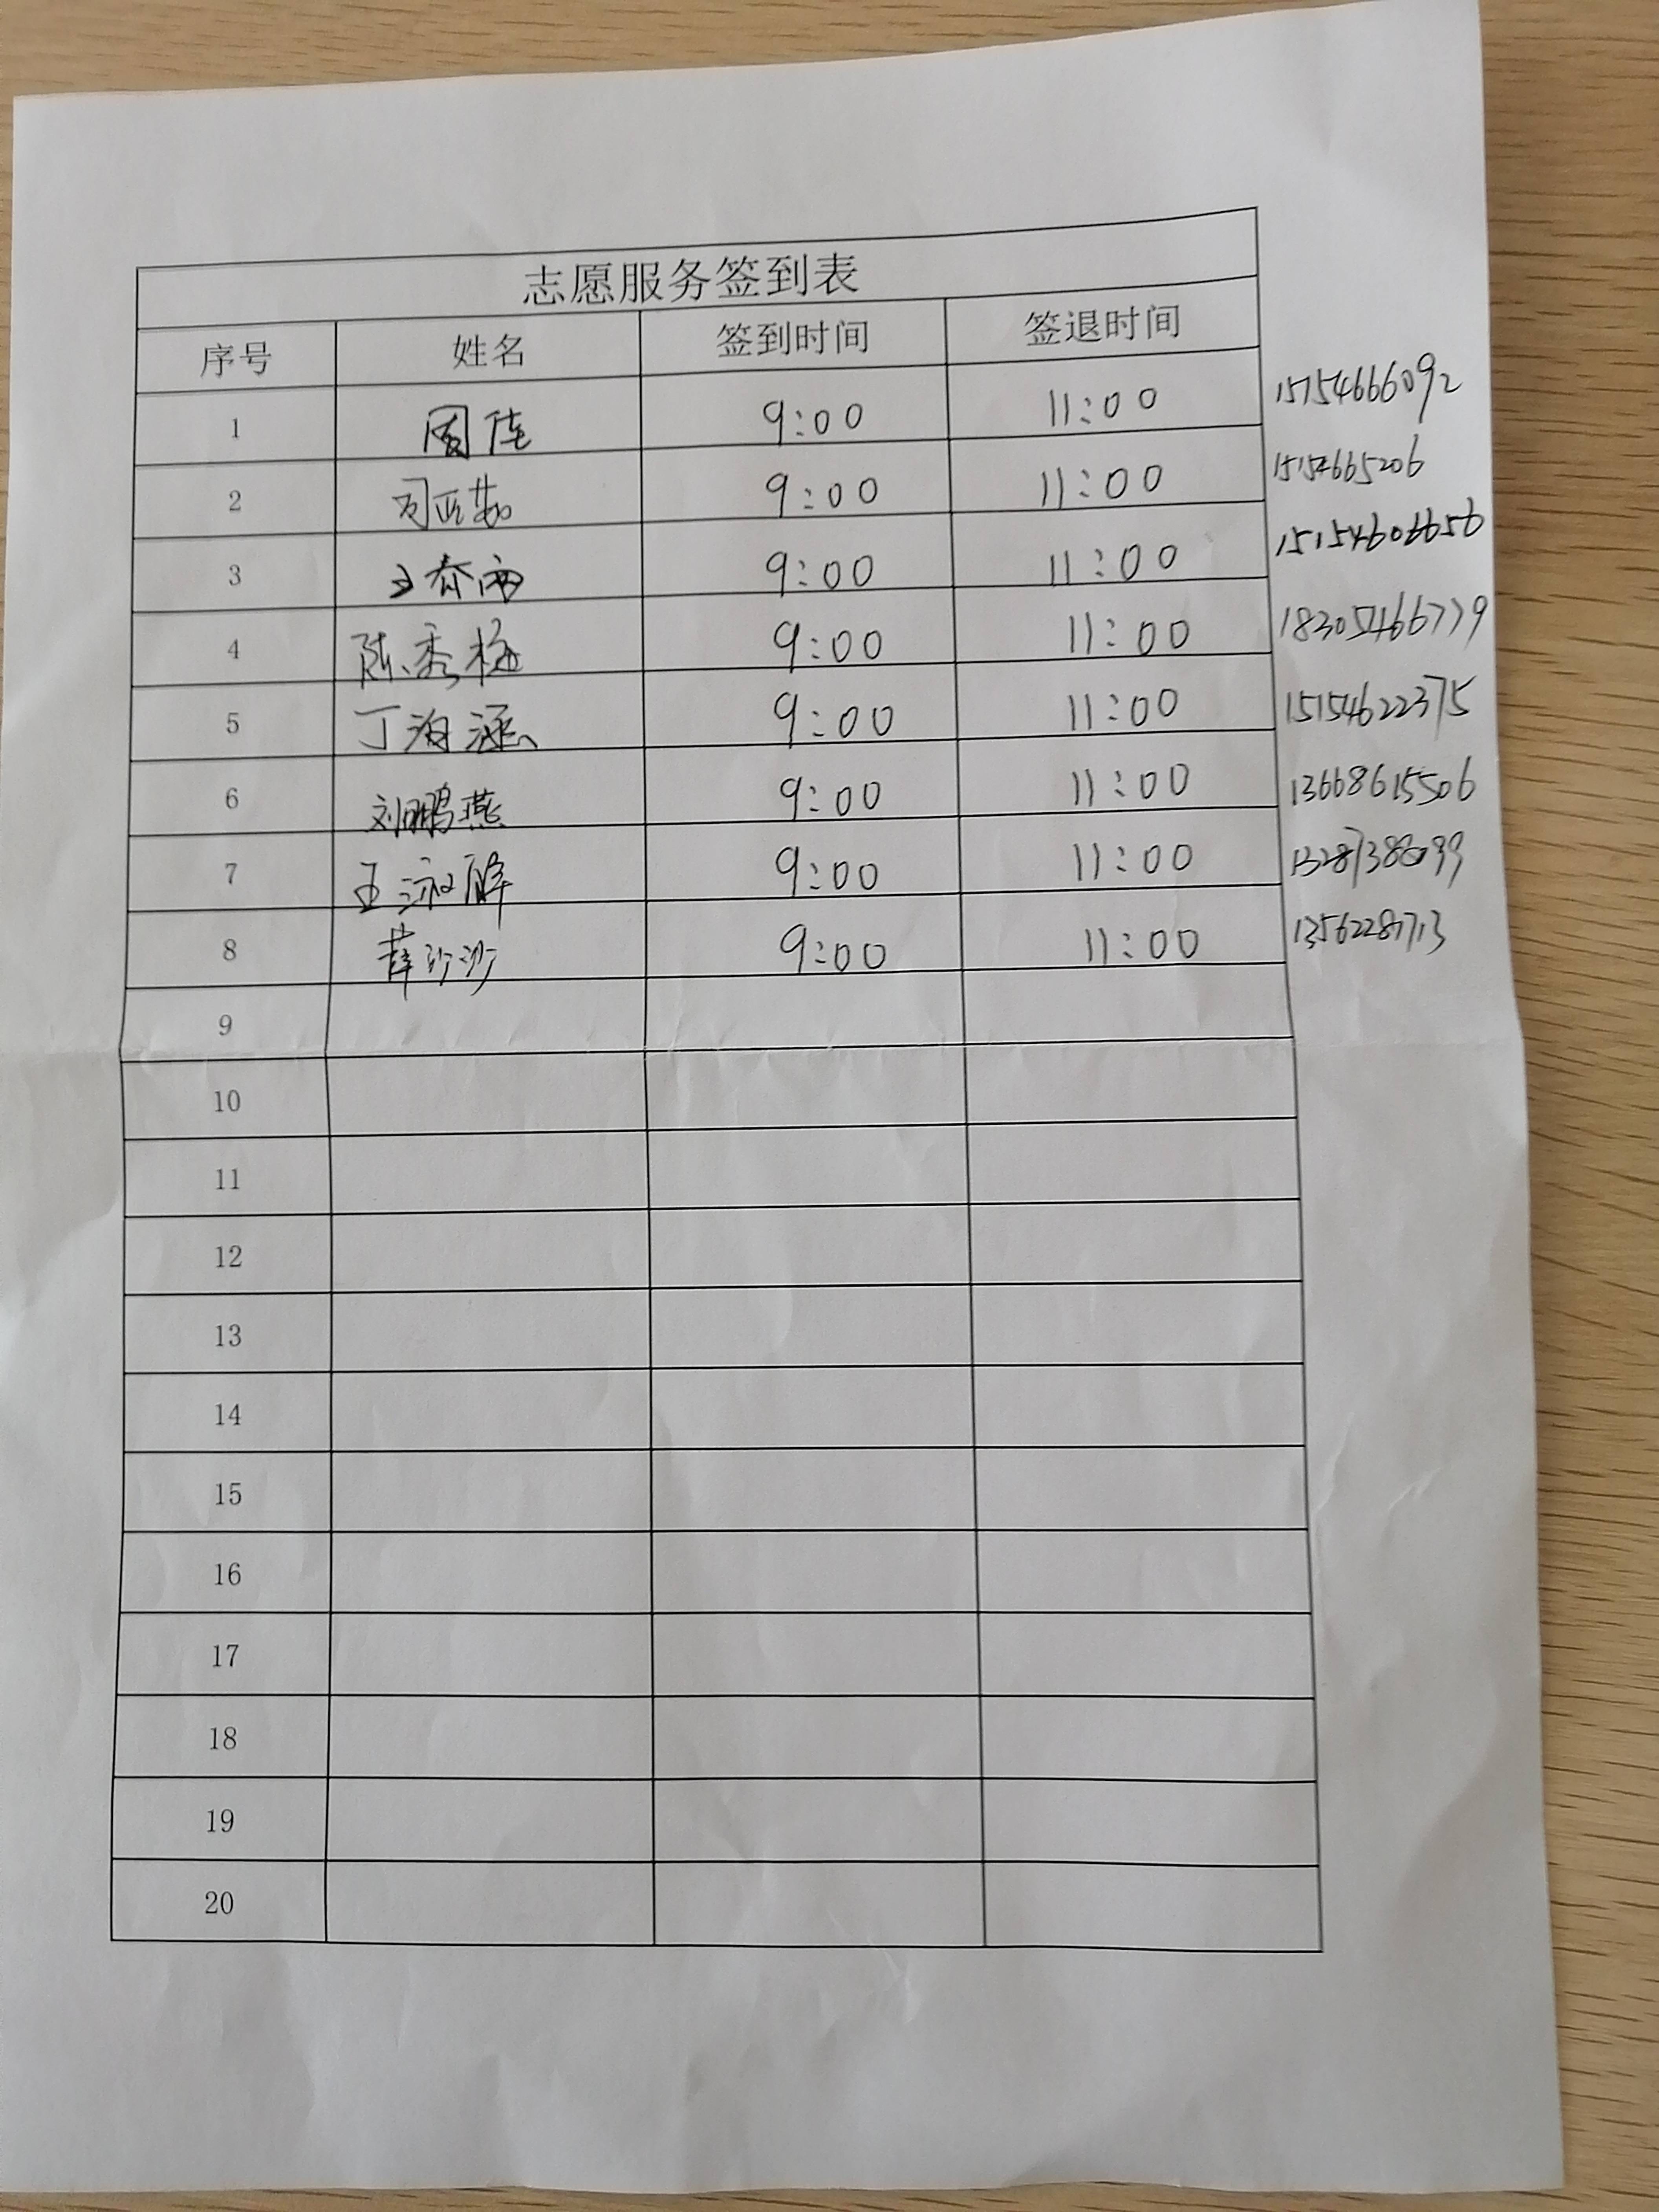 志愿服务签到表
序号 姓名 签到时间 签退时间
1 9:00 11:00 15754666092
2 9:00 11:00
3 9:00 11:00 15154606656
4 陈秀梅 9:00 11:00 18305466779
5 丁海涵 9:00 11:00 15154622375
6 刘鹏燕 9:00 11:00 13668615506
7 王 9:00 11:00
8 薛沙沙 9:00 11:00
9
10
11
12
13
14
15
16
17
18
19
20